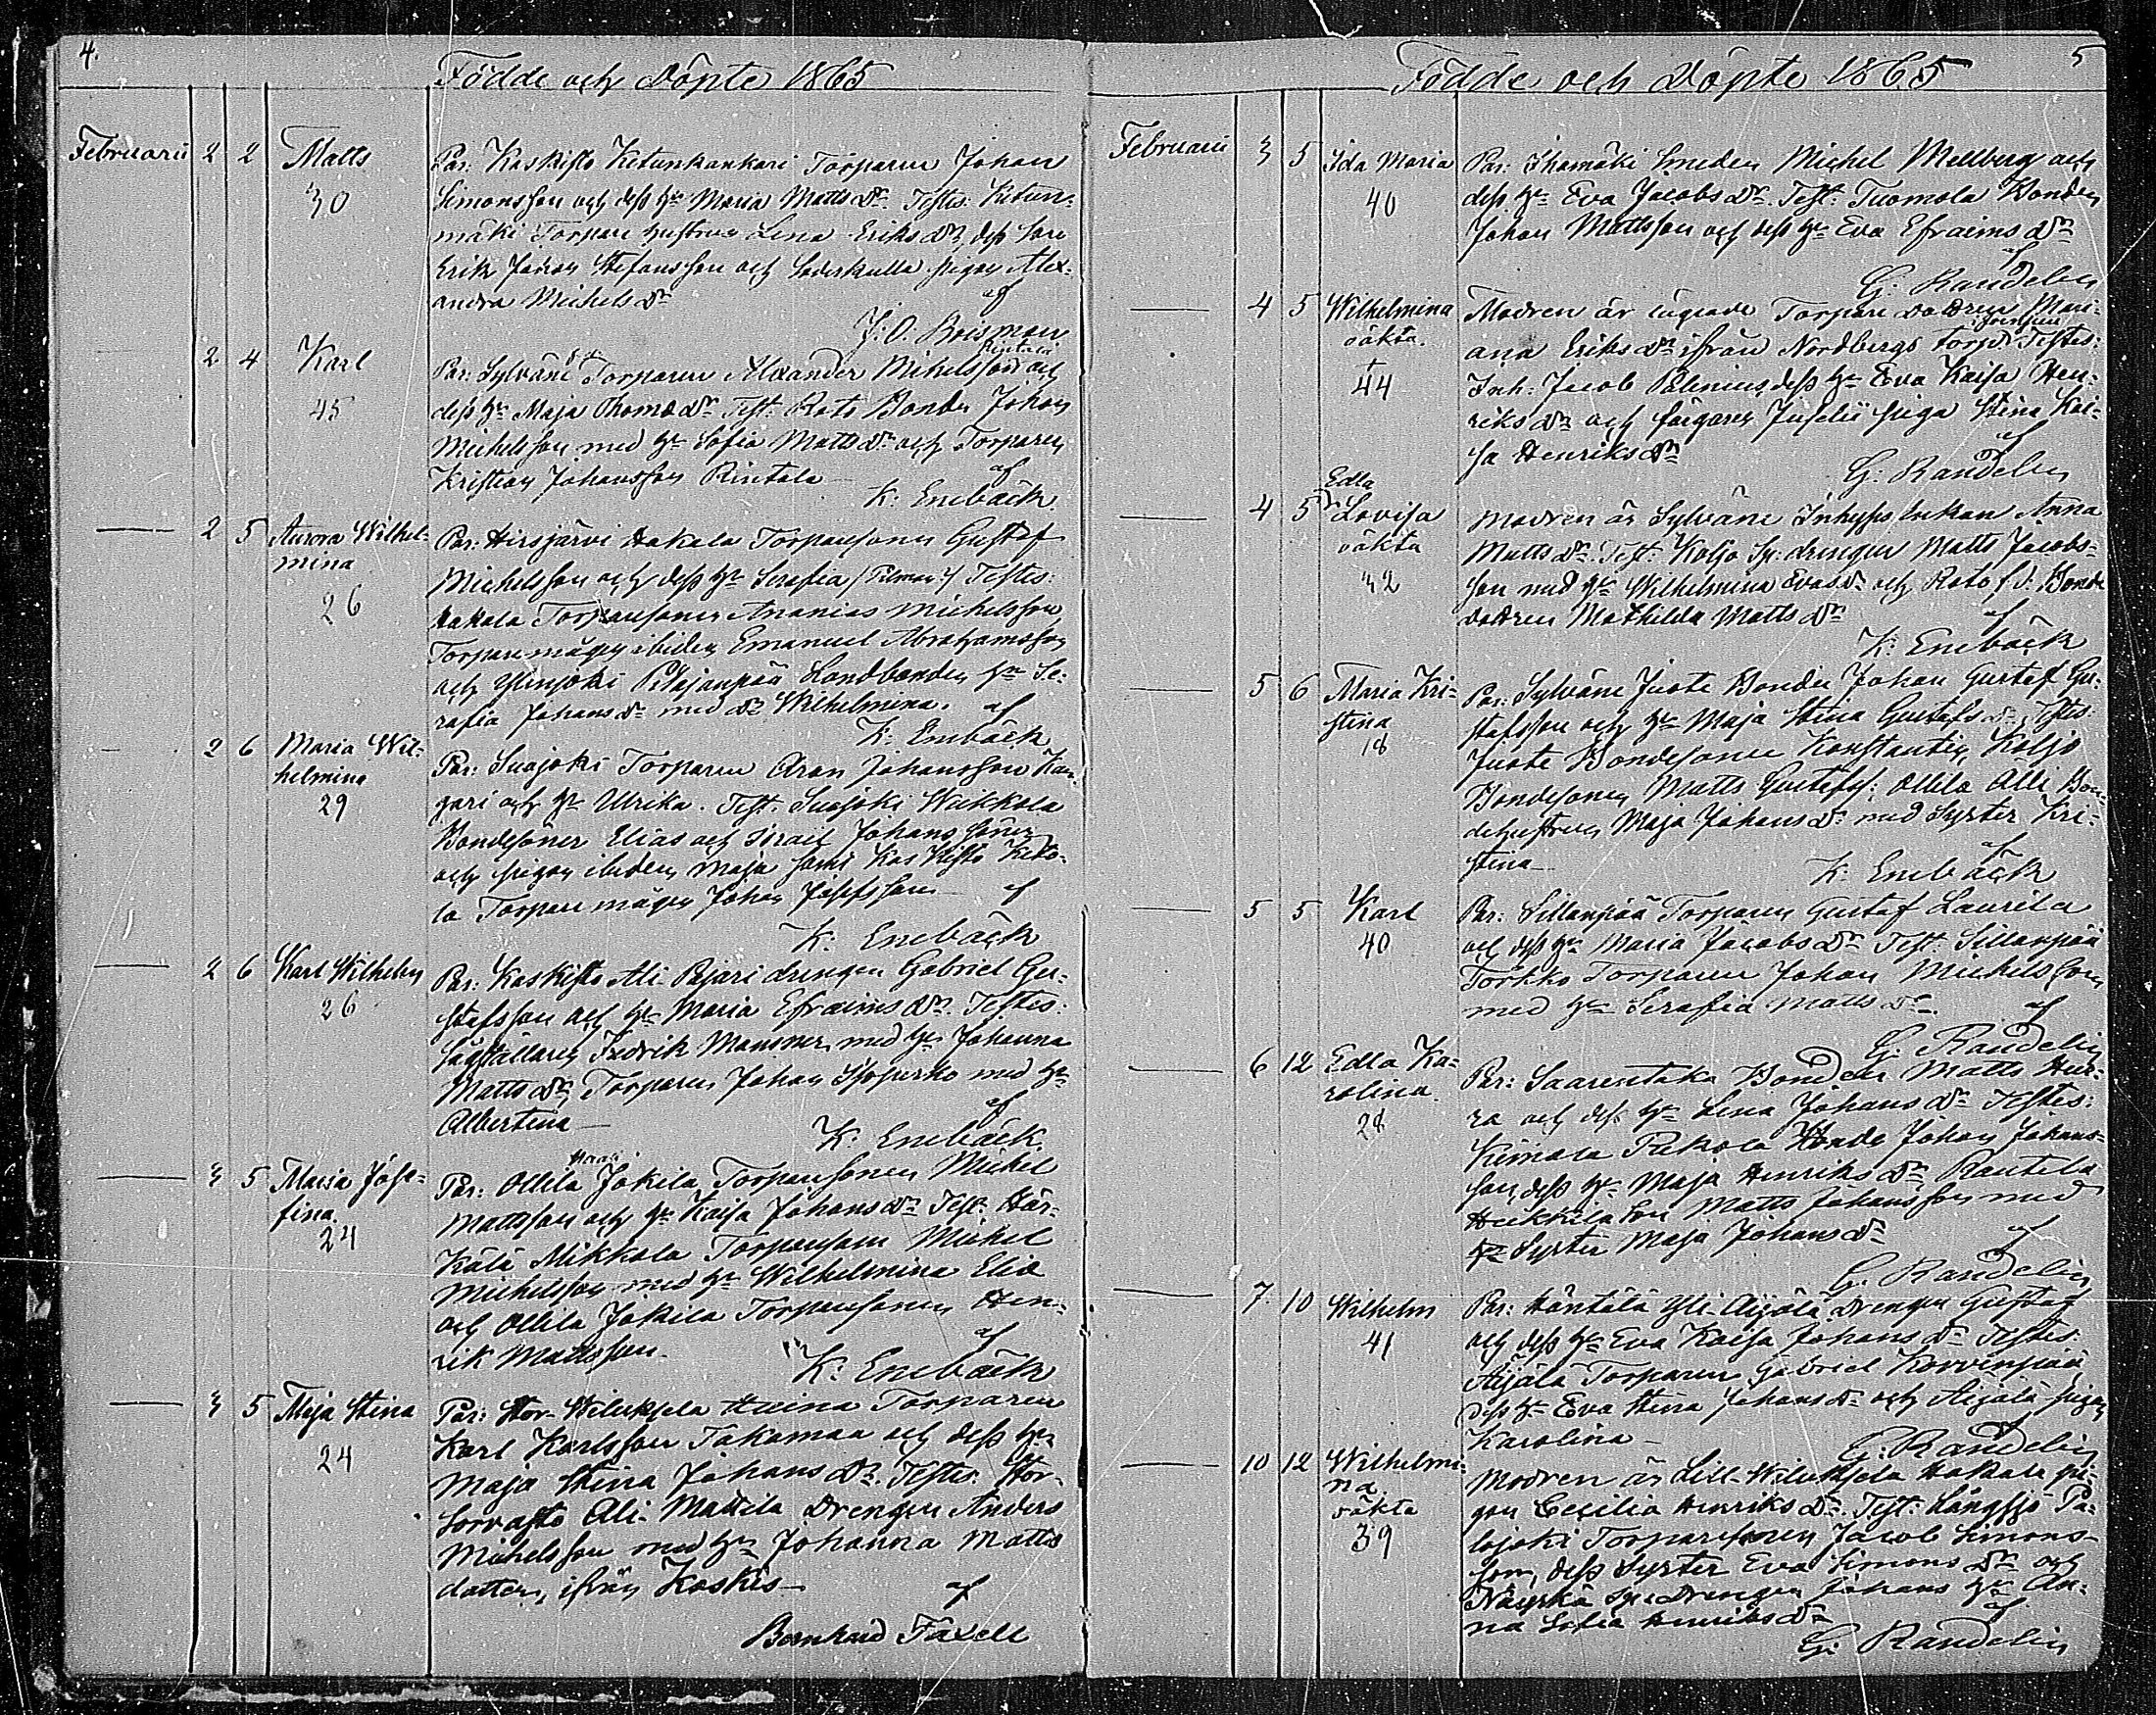 4.
Födde och Döpte 1865
Februarii 2 2 Matts
30
Par: Kaskisto Ketunkankari Torparen Johan
Simonsson och dess hu Maria Mattsdr Testes: Ketun-
mäki Torpare hustrun Lena Eriksdr, dess son
Erik Johan Stefansson och Söderkulla pigan Alex-
andra Michelsdr af
J: O. Roisman
2 4 Karl
45
Rintala
Par: Sylväne Torparen Alexander Michelsson och
dess hu Maja Thomædr Test: Rato Bonden Johan
Michelsson med hu Sofia Mattsdr och Torparen
Kristian Johansson Rintala af
K: Enebäck
2 5 Aurora Wilhel-
mina
26
Par: Hirsjärvi Hakala Torparsonen Gustaf
Michelsson och dess hu Serafia Testes:
Hakala Torparsonen Ananias Michelsson,
Torparemågen ibidem Emanuel Abrahamsson
och Ylisjoki Pohjanpää Landbonden hu Se-
rafia Johansdr med dr Wilhelmina. af
K: Enebäck
2 6 Maria Wil-
helmina
29
Par: Suojoki Torparen Aron Johansson Kan-
gari och hu Ulrika. Test: Suojoki Heikkola
Bondesöner Elias och Israil Johans söner
och pigan ibidem Maja samt Kaskisto Keto-
la Torparemågen Johan Josefsson af
K: Enebäck
2 6 Karl Wilhelm
26
Par: Kaskisto Ali-Pajari drengen Gabriel Gu-
stafsson och hu Maria Efraimsdr. Testes:
Fredrik Mansner med hu Johanna
Mattsdr, Torparen Johan med hu
Albertina af
K: Enebäck
3 5 Maria Jose-
fina
24
Par: Ollila Jokila Torparsonen Michel
Mattsson och hu Kaisa Johansdr Test: Här-
kälä Mikkola Torparson Michel
Michelsson med hu Wilhelmina Eliæ
och Ollila Jokila Torparsonen Hen-
rik Mattsson af
K: Enebäck
3 5 Maja Stina
24
Par: Stor-Wiluksela Heina Torparen
Karl Karlsson Takamaa och dess hu
Maja Stina Johansdr. Testes: Stor-
Sorvasto Ali-Mattila Drengen Anders
Michelsson med hu Johanna Matts
dotter, ifrån Koskis af
Bernhard Taxell
5
Födde och Döpte 1865
Februarii 3 5 Ida Maria
40
Par: Ihamäki Smeden Michel Mellberg och
dess hu Eva Jacobsdr. Test: Tuomola Bonden
Johan Mattsson och dess hu Eva Efraimsdr
af
G: Randelin
4 5 Wilhelmina
oäkta.
+
44
Modren är Torpare Dottren Mari-
ana Eriksdr ifrån Nordbergs torp. Testes:
Inh: Jacob Palenius, dess hu Eva Kaisa Hen-
riksdr och färgaren Juselii piga Stina Kai-
sa Henriksdr af
G: Randelin
4 5 Edla
Lovisa
oäkta
42
Modren är Sylväne Inhyses Enkan Anna
Mattsdr. Test: Koljo Sp. drengen Matts Jacobs-
son med hu Wilhelmina Evasdr och Rato f.d. Bonde
dottren Mathilda Mattsdr af
K: Enebäck
5 6 Maria Kri-
stina
18
Par: Sylväne Juote Bonden Johan Gustaf Gu-
stafsson och hu Maja Stina Gustafsdr. Testes:
Juote Bondesonen Konstantin, Koljo
Bondesonen Matts Gustafs: Ollila Alli Bon-
dehustrun Maja Johansdr med Syster Kri-
stina af
K: Enebäck
5 5 Karl
40
Par: Sillanpää Torparen Gustaf Laurila
och dess hu Maria Jacobsdr Test: Sillanpää
Törkko Torparen Johan Michelsson
med hu Serafia Mattsdr. af
G: Randelin
6 12 Edla Ka-
rolina
28
Par: Saarentaka Bonden Matts Hur-
ra och dess hu Lena Johansdr Testes:
Kimala Pukola Bonde Johan Johans-
son, dess hu Maja Henriksdr Rautela
Heikkilä Son Matts Johansson med
Syster Maja Johansdr af
G: Randelin
7 10 Wilhelm
41
Par: Häntälä Yli-Äijälä Drengen Gustaf
och dess hu Eva Kaisa Johansdr Testes:
Äijälä Torparen Gabriel Korvenpää
dess hu Eva Stina Johansdr och Äijälä pigan
Karolina
G: Randelin
10 12 Wilhelmi-
na
oäkta
39
Modren är Lill-Wiluksela Hakala pi-
gan Cecilia Henriksdr. Test: Långsjö Pa-
lojoki Torparsonen Jacob Simons-
son, dess Syster Eva Simonsdr och
Näyskä Drengen Johans hu An-
na Sofia Henriksdr af
G: Randelin